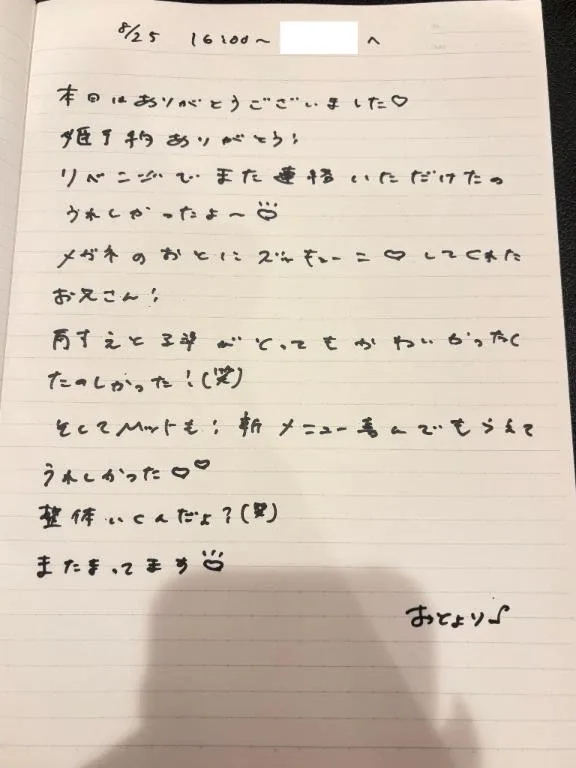 8/25 16:00〜 へ
本日はありがとうございました♡
姫予約ありがとう!
リベンジでまた連絡いただけたの
うれしかったよ〜
メガネのおとにズッキューン♡してくれた
お兄さん!
がとってもかわいかったし
たのしかった!(笑)
そしてMットも!新メニュー喜んでもらえて
うれしかった♡♡
整体いくんだよ?(笑)
またまってます
おとより♪